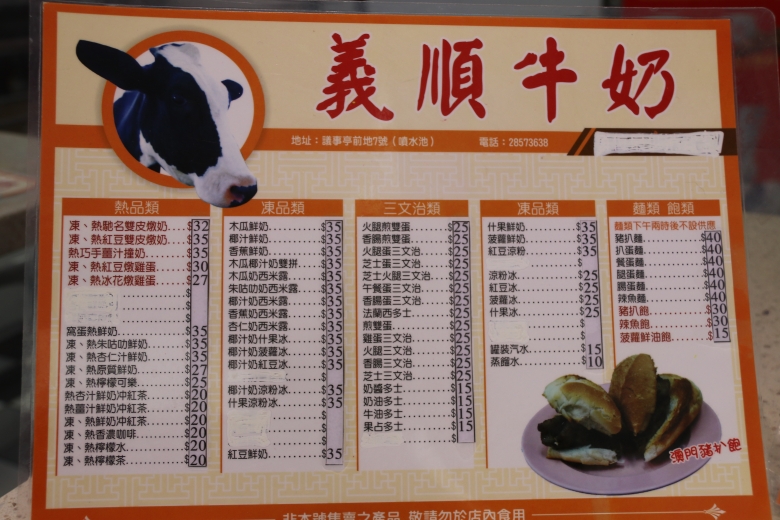 義順牛奶
地址：議事亭前地7號（噴水池）
電話：28573638
熱品類
凍、熱馳名雙皮燉奶....$32
凍、熱紅豆雙皮燉奶....$35
熱巧手薑汁撞奶....$35
凍、熱紅豆燉雞蛋....$30
凍、熱冰花燉雞蛋....$27
$
$
$
窩蛋熱鮮奶....$35
凍、熱朱咕叻鮮奶....$35
凍、熱杏仁汁鮮奶....$35
凍、熱原質鮮奶....$27
凍、熱檸檬可樂....$25
熱杏汁鮮奶冲紅茶....$20
熱薑汁鮮奶冲紅茶....$20
凍、熱鮮奶冲紅茶....$20
凍、熱香濃咖啡....$20
凍、熱檸檬水....$20
凍、熱檸檬茶....$20
凍品類
木瓜鮮奶....$35
椰汁鮮奶....$35
香蕉鮮奶....$35
木瓜椰汁奶雙拼....$35
木瓜奶西米露....$35
朱咕叻奶西米露....$35
椰汁奶西米露....$35
香蕉奶西米露....$35
杏仁奶西米露....$35
椰汁奶什果冰....$35
椰汁奶菠蘿冰....$35
椰汁奶紅豆冰....$35
椰汁涼粉冰....$35
什果涼粉冰....$35
紅豆鮮奶....$35
三文治類
火腿煎雙蛋....$25
香腸煎雙蛋....$25
火腿蛋三文治....$25
芝士蛋三文治....$25
芝士火腿三文治....$25
午餐蛋三文治....$25
香腸蛋三文治....$25
法蘭西多士....$25
煎雙蛋....$25
雞蛋三文治....$25
火腿三文治....$25
香腸三文治....$25
芝士三文治....$25
奶醬多士....$15
奶油多士....$15
牛油多士....$15
果占多士....$15
$
凍品類
什果鮮奶....$35
菠蘿鮮奶....$35
紅豆涼粉....$35
涼粉冰....$25
紅豆冰....$25
菠蘿冰....$25
什果冰....$25
罐裝汽水....$15
蒸餾水....$10
麵類 飽類
麵類下午兩時後不設供應
豬扒麵....$40
扒蛋麵....$40
餐蛋麵....$40
腿蛋麵....$40
腸蛋麵....$40
辣魚麵....$40
豬扒飽....$30
辣魚飽....$30
菠蘿鮮油飽....$15
澳門豬扒飽
非本號售賣之產品 敬請勿於店內食用